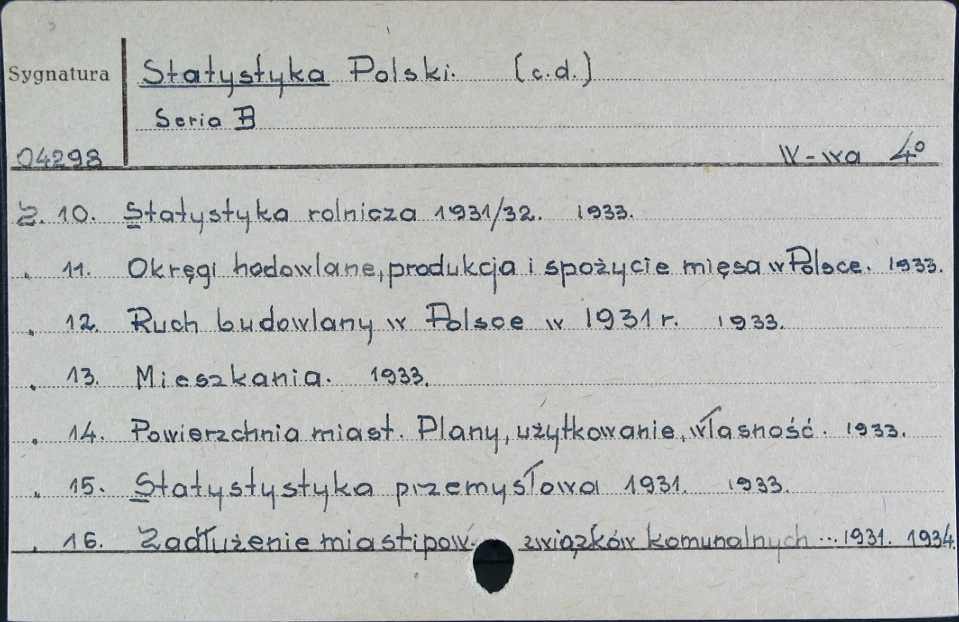 Sygnatura
Statystyka Polski. (c.d.)
Seria B
04298
W-wa 4º
Z. 10. Statystyka rolnicza 1931/32. 1933.
" 11. Okręgi hodowlane, produkcja i spożycie mięsa w Polsce. 1933.
" 12. Ruch budowlany w Polsce w 1931 r. 1933.
" 13. Mieszkania. 1933.
" 14. Powierzchnia miast. Plany, użytkowanie, własność. 1933.
" 15. Statystystyka przemysłowa 1931. 1933.
" 16. Zadłużenie miast i pow. związków komunalnych ... 1931. 1934.